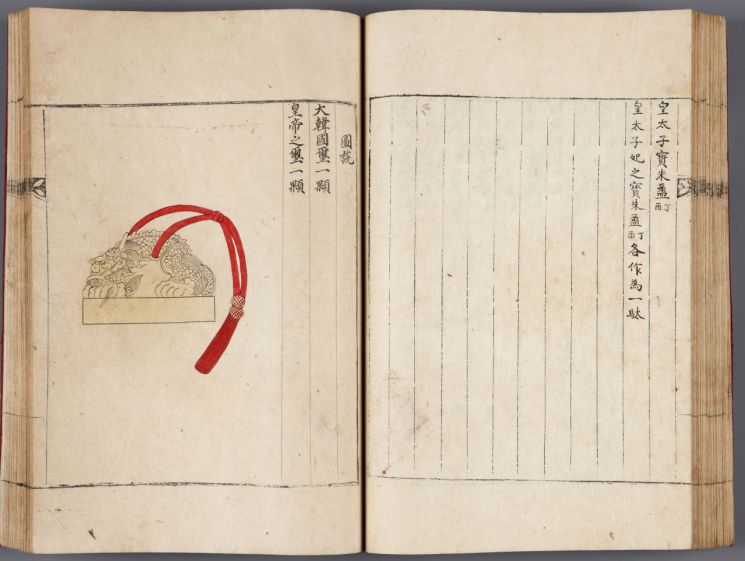 皇太子寶朱盝丁酉
皇太子妃之寶朱盝丁酉各作為一馱
圖說
大韓國璽一顆
皇帝之璽一顆